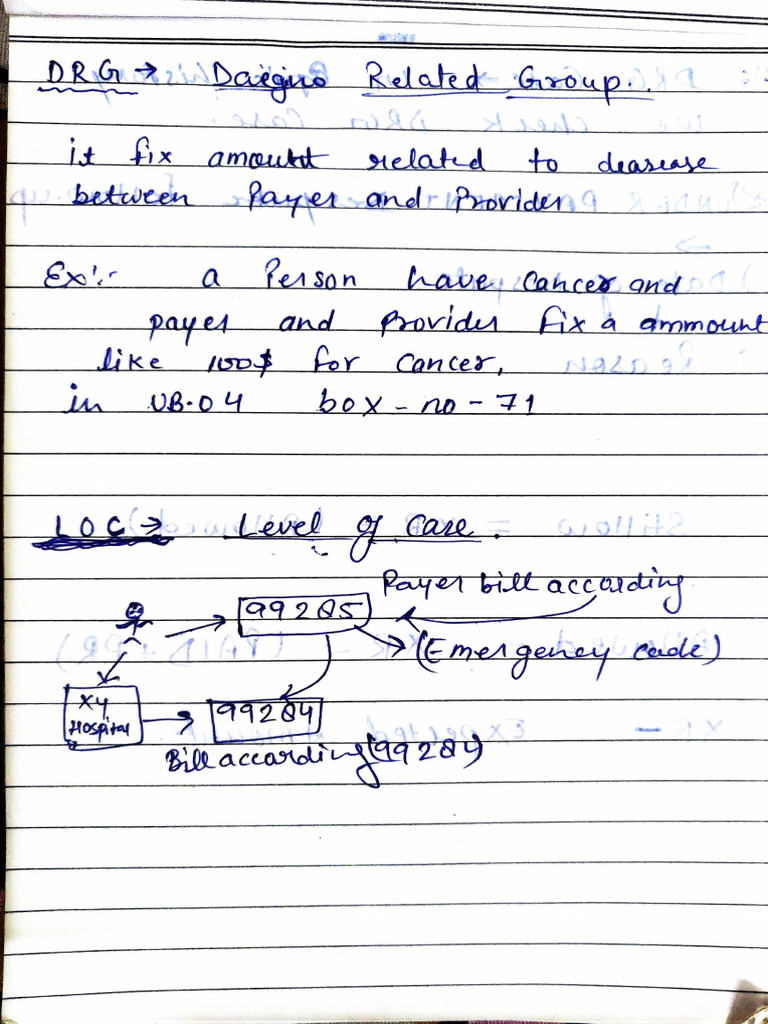 DRG → Daegno Related Group.
it fix amount related to dearease
between Payer and Provider
Ex:- a Person have cancer and
payer and Provider fix a ammount
like 100$ for cancer,
in UB-04 box-no-71
LOC → Level of Care.
Payer bill according
99285
(Emergency code)
XY
Hospital
99284
Bill according (99284)